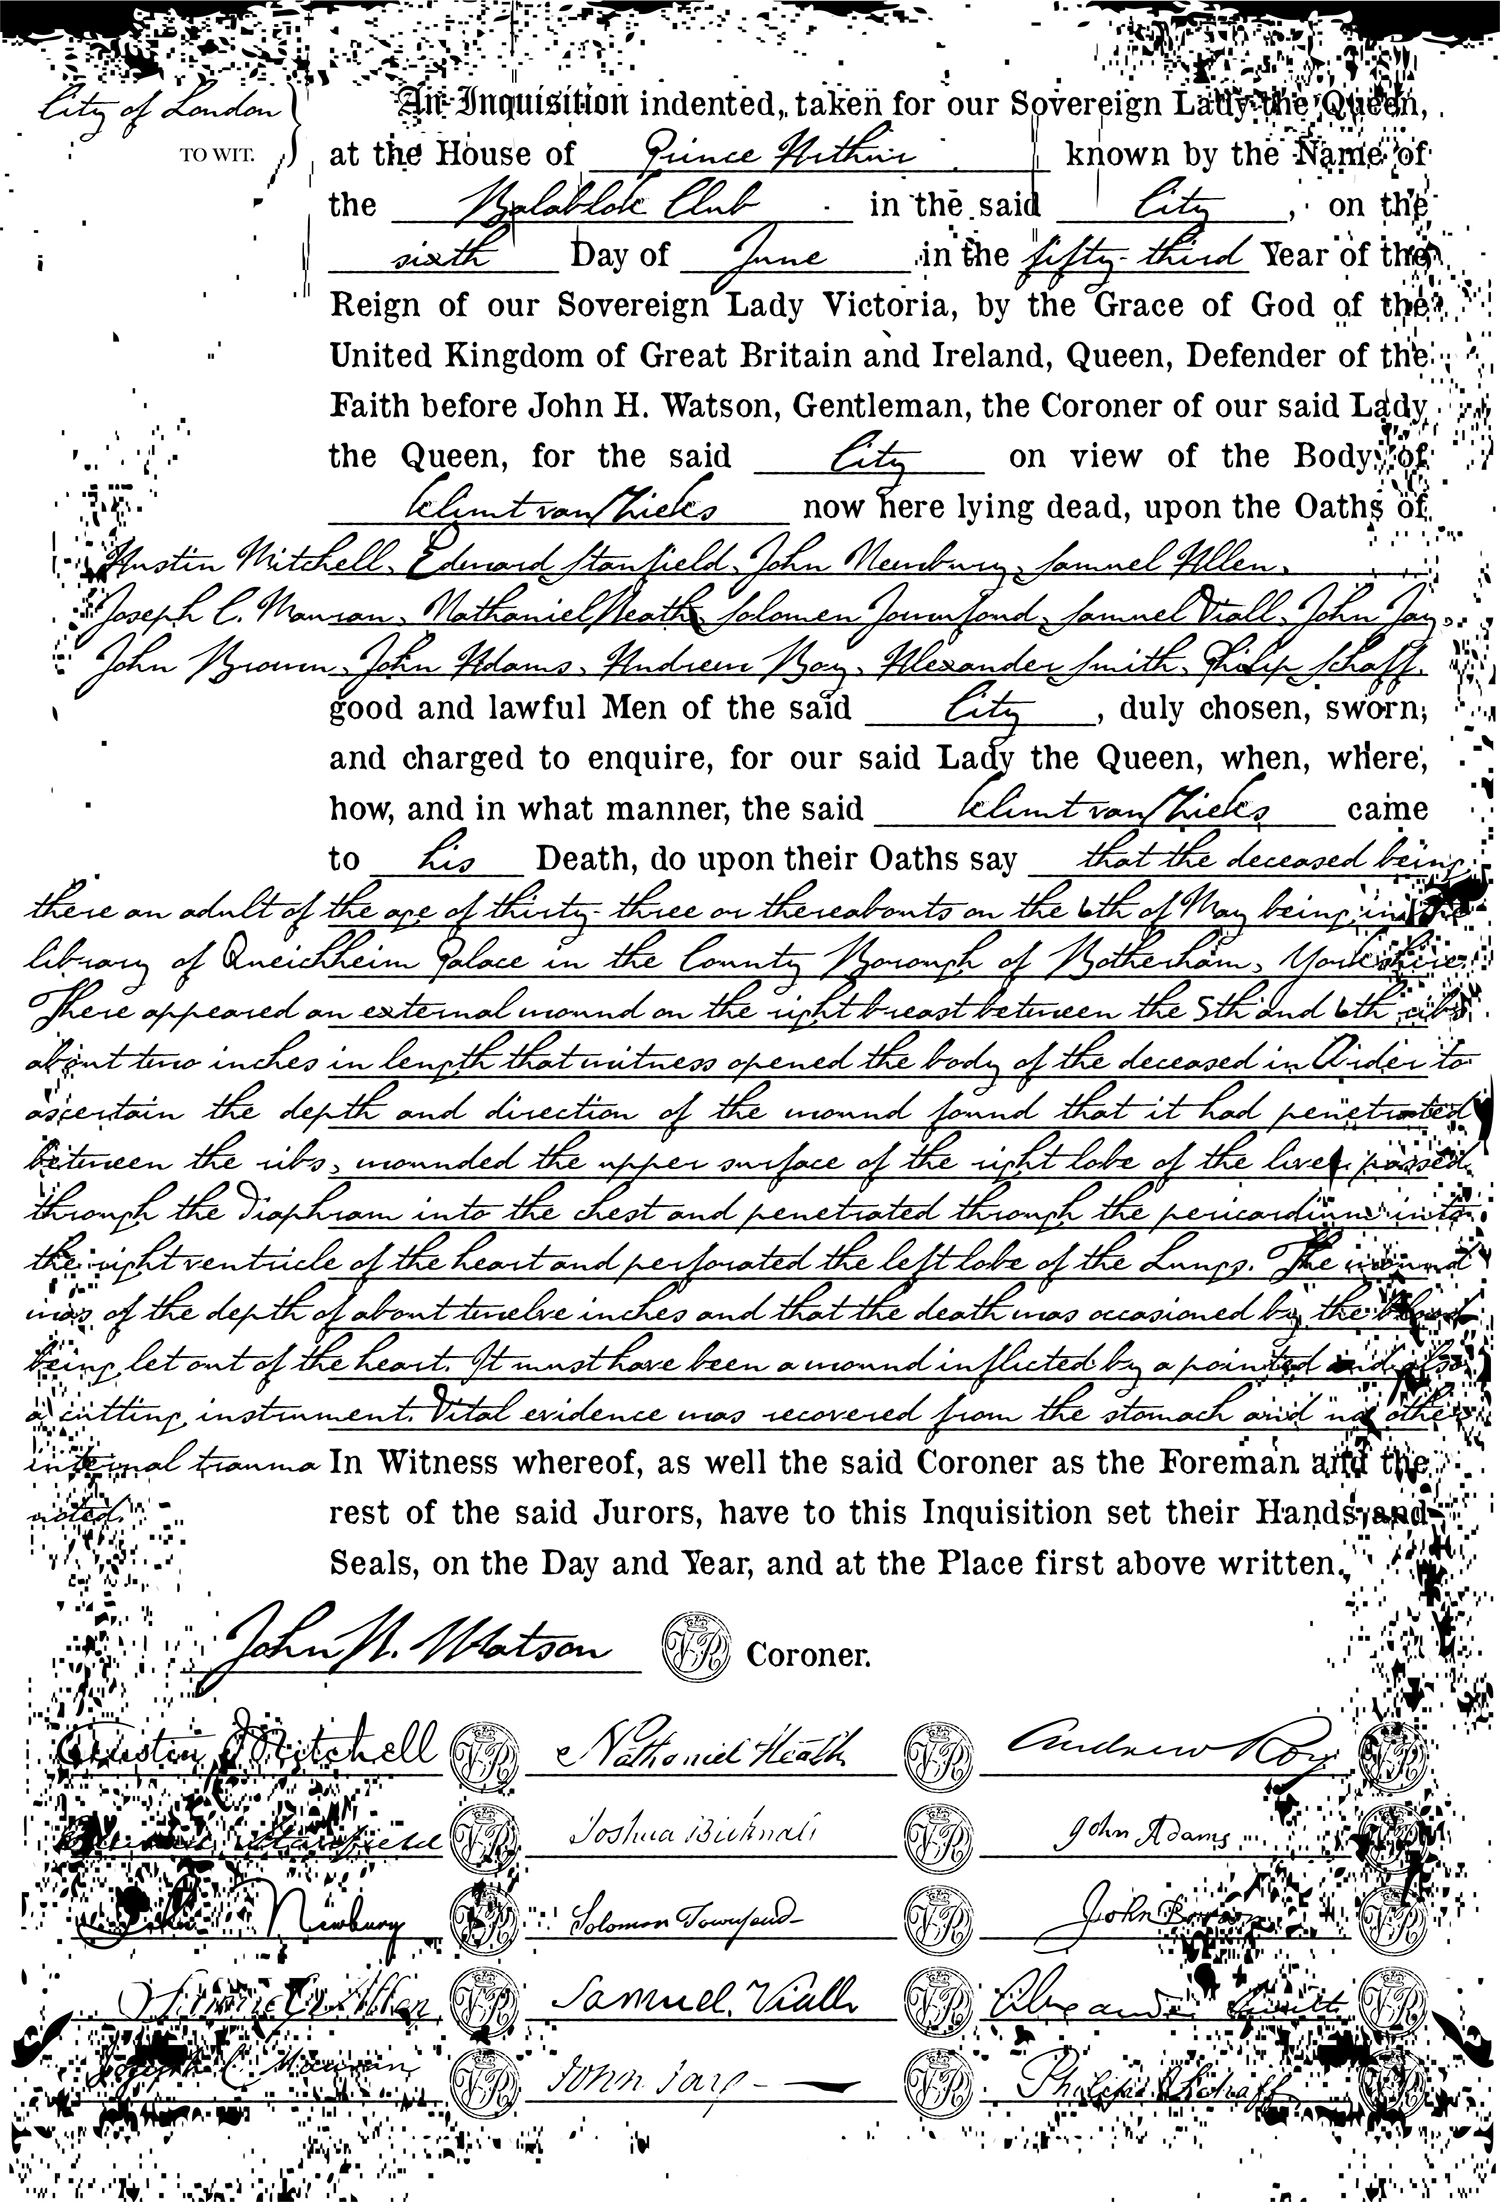 City of London An Inquisition indented, taken for our Sovereign Lady the Queen,
TO WIT. at the House of Prince Arthur known by the Name of
the Balablok Club in the said City, on the
sixth Day of June in the fifty-third Year of the
Reign of our Sovereign Lady Victoria, by the Grace of God of the
United Kingdom of Great Britain and Ireland, Queen, Defender of the
Faith before John H. Watson, Gentleman, the Coroner of our said Lady
the Queen, for the said City on view of the Body of
Klimt van Zieks now here lying dead, upon the Oaths of
Austin Mitchell, Edward Stanfield, John Newbury, Samuel Allen,
Joseph C. Mauran, Nathaniel Heath, Solomen Jownsond, Samuel Viall, John Jay,
John Brown, John Adams, Andrew Boy, Alexander Smith, Philip Schaff,
good and lawful Men of the said City, duly chosen, sworn,
and charged to enquire, for our said Lady the Queen, when, where,
how, and in what manner, the said Klimt van Zieks came
to his Death, do upon their Oaths say that the deceased being
there an adult of the age of thirty-three or thereabouts on the 6th of May being in the
library of Queichheim Palace in the County Borough of Botherham, Yorkshire.
There appeared an external wound on the right breast between the 5th and 6th ribs
about two inches in length that witness opened the body of the deceased in Order to
ascertain the depth and direction of the wound found that it had penetrated
between the ribs, wounded the upper surface of the right lobe of the liver passed
through the Diaphram into the chest and penetrated through the pericardium into
the right ventricle of the heart and perforated the left lobe of the Lungs. The wound
was of the depth of about twelve inches and that the death was occasioned by the blood
being let out of the heart. It must have been a wound inflicted by a pointed and also
a cutting instrument. Vital evidence was recovered from the stomach and no other
internal trauma In Witness whereof, as well the said Coroner as the Foreman and the
noted. rest of the said Jurors, have to this Inquisition set their Hands and
Seals, on the Day and Year, and at the Place first above written.
John H. Watson VR Coroner.
Austin Mitchell VR Nathaniel Heath VR Andrew Roy VR
Edward Stanfield VR Joshua Bicknall VR John Adams VR
John Newbury VR Solomon Townsend VR John Brown VR
Samuel Allen VR Samuel Viall VR Alexander Smith VR
Joseph C Mauran VR John Jay VR Philip Schaff VR